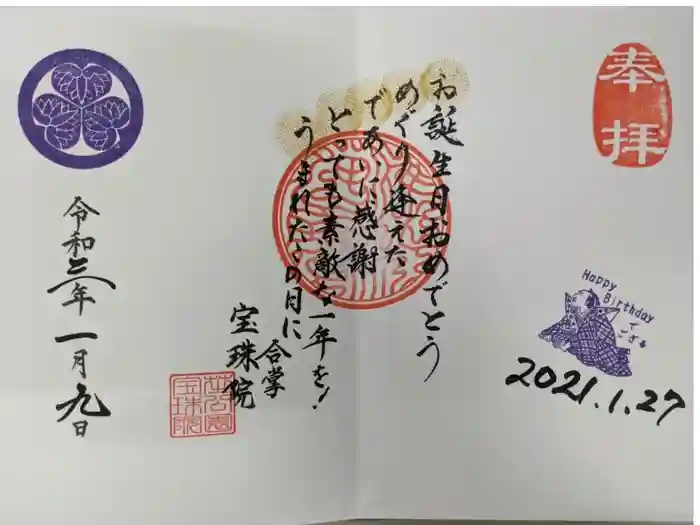 奉拝
Happy
Birthday
で
ござる
2021.1.27
お誕生日おめでとう
めぐり逢えた
であいに感謝
とっても素敵な一年を!
うまれたこの日に
合掌
宝珠院
芝公園
宝珠院
令和三年一月九日